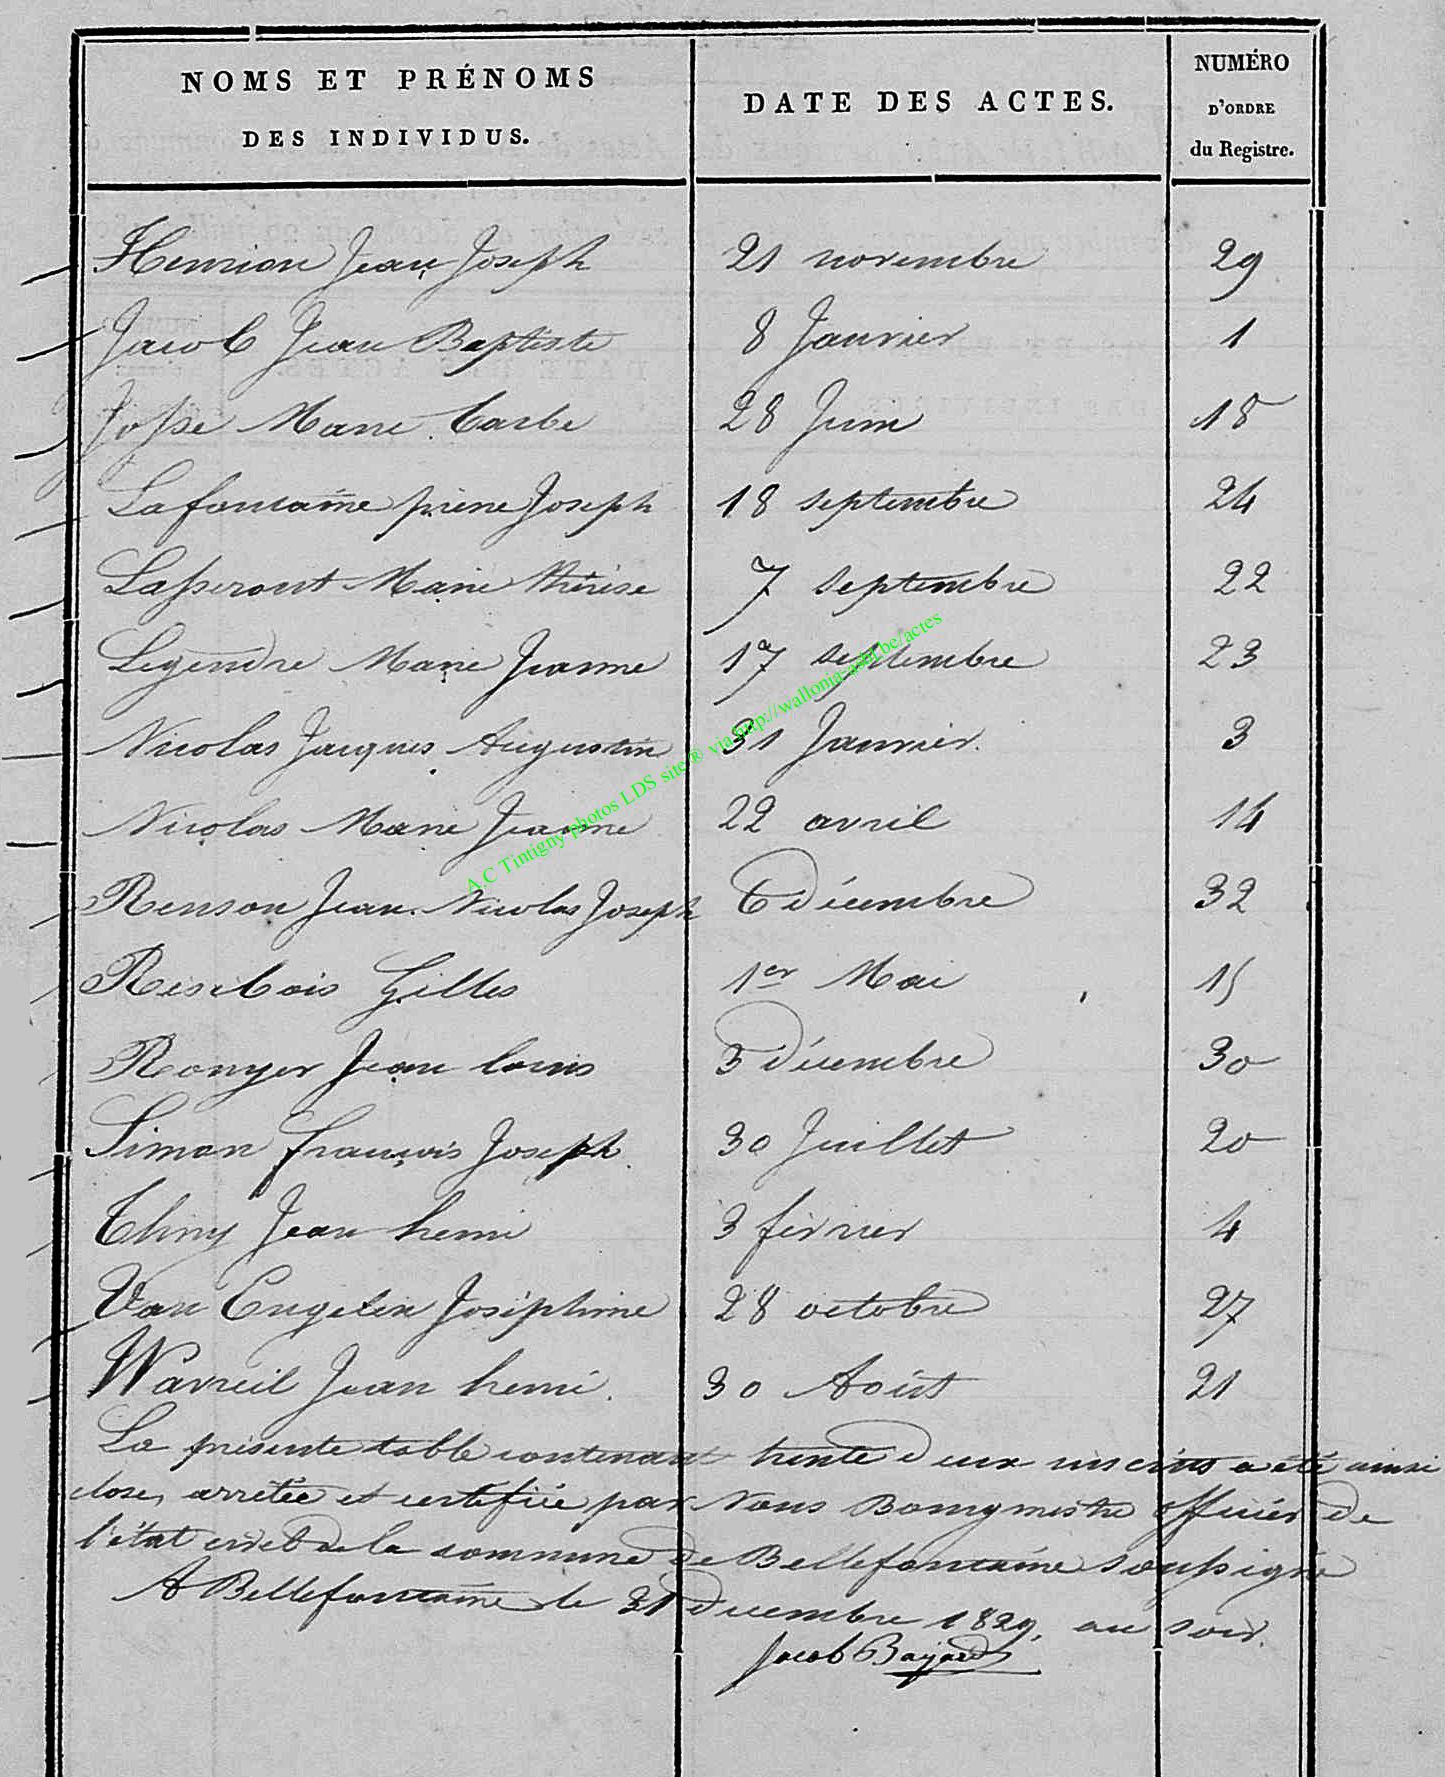 NOMS ET PRÉNOMS
DES INDIVIDUS.
DATE DES ACTES.
NUMÉRO
D'ORDRE
du Registre.
Henrion Jean Joseph 21 novembre 29
Jacob Jean Baptiste 8 Janvier 1
Josse Marie barbe 28 Juin 18
Lafontaine pierre Joseph 18 septembre 24
Lasseront Marie thérèse 7 septembre 22
Legendre Marie Jeanne 17 septembre 23
Nicolas Jacques Augustin 31 Janvier. 3
Nicolas Marie Jeanne 22 avril 14
Renson Jean Nicolas Joseph 6 décembre 32
Resibois Gilles 1er Mai 15
Ronger Jean louis 3 décembre 30
Simon françois Joseph. 30 Juillet 20
Thiry Jean henri 3 février 4
Van Engelen Joséphine 28 octobre 27
Wavreil Jean henri. 30 Août 21
La présente table contenant trente deux inscrits a été ainsi
close, arrêtée et certifiée par Nous Bourgmestre officier de
l'état civil de la commune de Bellefontaine soussigné
A Bellefontaine le 31 décembre 1829, au soir.
Jacob Bayard
A.C Tintigny photos LDS site ® via http://wallonia-asbl.be/actes